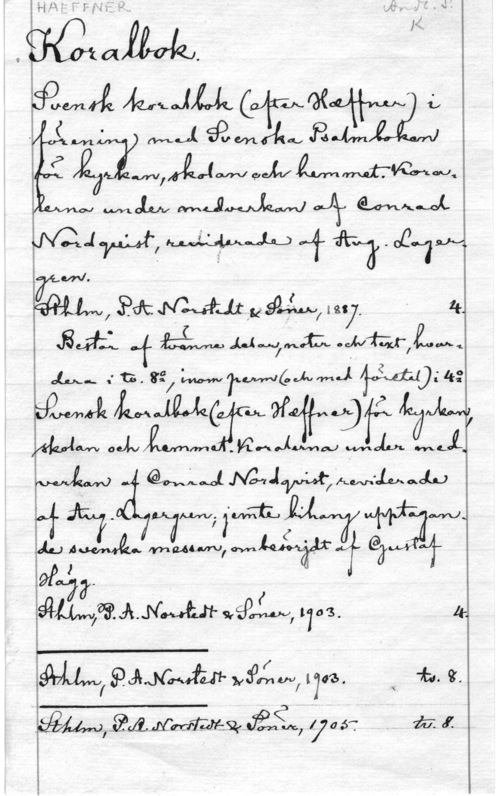 HAEFFNER
K
Koralbok.
Svensk koralbok (efter Hæffner) i
förening med Svenska Psalmboken
för kyrkan, skolan och hemmet. Kora-
lerna under medverkan af Conrad
Nordquist, reviderade af Aug. Lager-
gren.
Sthlm, P. A. Norstedt & Söner, 1887. 4.
Består af tvänne delar, noter och text, hvar-
dera i tv. 8:o, inom perm (och med företal) i 4:o
Svensk koralbok (efter Hæffner) för kyrkan,
skolan och hemmet. Koralerna under med-
verkan af Conrad Nordqvist, reviderade
af Aug. Lagergren; jemte bihang upptagan-
de svenska messan, ombesörjdt af Gustaf
Hägg.
Sthlm, P. A. Norstedt & Söner, 1903. 4.
Sthlm, P. A. Norstedt & Söner, 1903. tv. 8.
Sthlm, P. A. Norstedt & Söner, 1905. tv. 8.